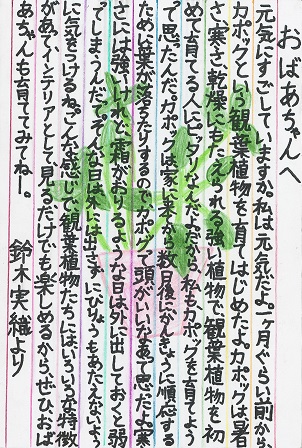 おばあちゃんへ
元気にすごしていますか。私は元気だよ。一ヶ月ぐらい前から
カポックという観葉植物を育てはじめたよ。カポックは暑
さ、寒さ、乾燥にもたえられる強い植物で、観葉植物を初
めて育てる人にピッタリなんだよ。だから、私もカポックを育てよう
って思ったんだ。カポックは家に来て数日後にかんきょうに順応する
ために葉が落ちたりするので、カポックって頭がいいなあて思ったよ。寒
さには強いけれど、霜がおりるような日は外に出しておくと弱
ってしまうんだって。そんな日は外には出さず、にひりょうもあたえないよう
に気をつけるね。こんな感じで観葉植物たちにはいろいろな特徴
があってインテリアとして見るだけでも楽しめるから、ぜひ、おば
あちゃんも育ててみてねー。
鈴木実織より